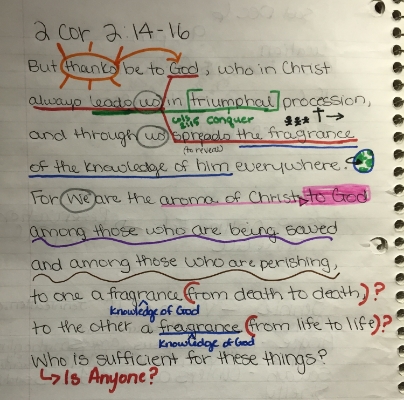 2 Cor 2:14-16
But thanks be to God, who in Christ
always leads us in [triumphal] procession,
conquer
and through us spreads the fragrance
(to reveal)
of the knowledge of him everywhere.
For we are the aroma of Christ to God
among those who are being saved
and among those who are perishing,
to one a fragrance (from death to death)?
knowledge of God
to the other a fragrance (from life to life)?
knowledge of God
Who is sufficient for these things?
Is Anyone?